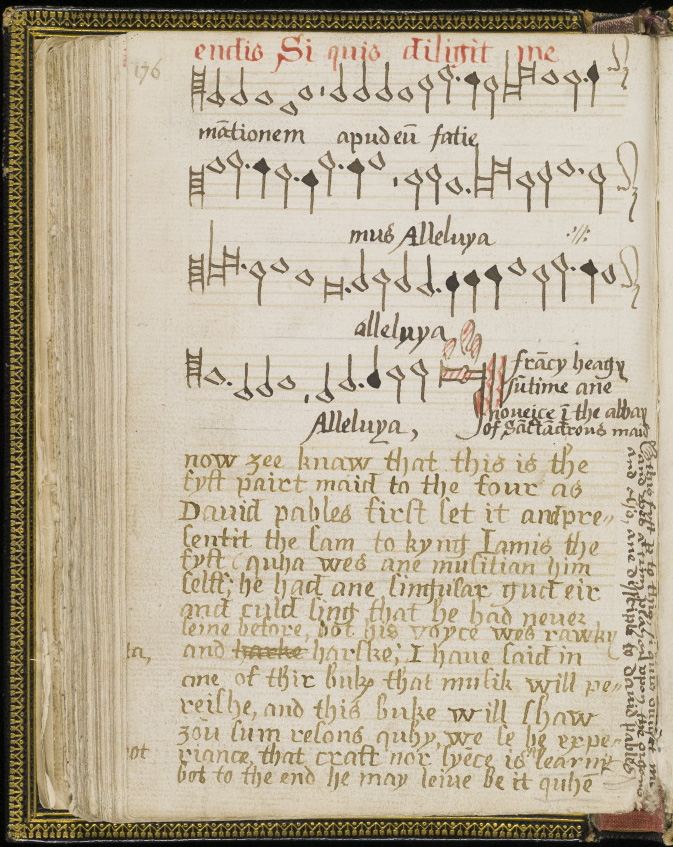 endis Si quis diligit me
176
mātionem apud eū facie
mus Alleluya
alleluya
frācy heagy
sūtime ane
noueice ī the abbay
of Sāctādrous maid
Alleluya,
now zee knaw that this is the
fyft pairt maid to the four as
Dauid pables first set it and pre„
sentit the sam to kyng Iamis the
fyft (quha wes ane musitian him
selff; he had ane singular gud eir
and culd sing that he had neuer
seine before, bot his voyce wes rawky
and harske harske; I haue said in
ane of thir buks that musik will pe„
reishe, and this buke will shaw
zōu sum resons quhy, we se be expe„
riance, that craft nor syēce is learnit
bot to the end he may leiue be it quhē
ta,
ot
and als, ane dysciple to dauid pables